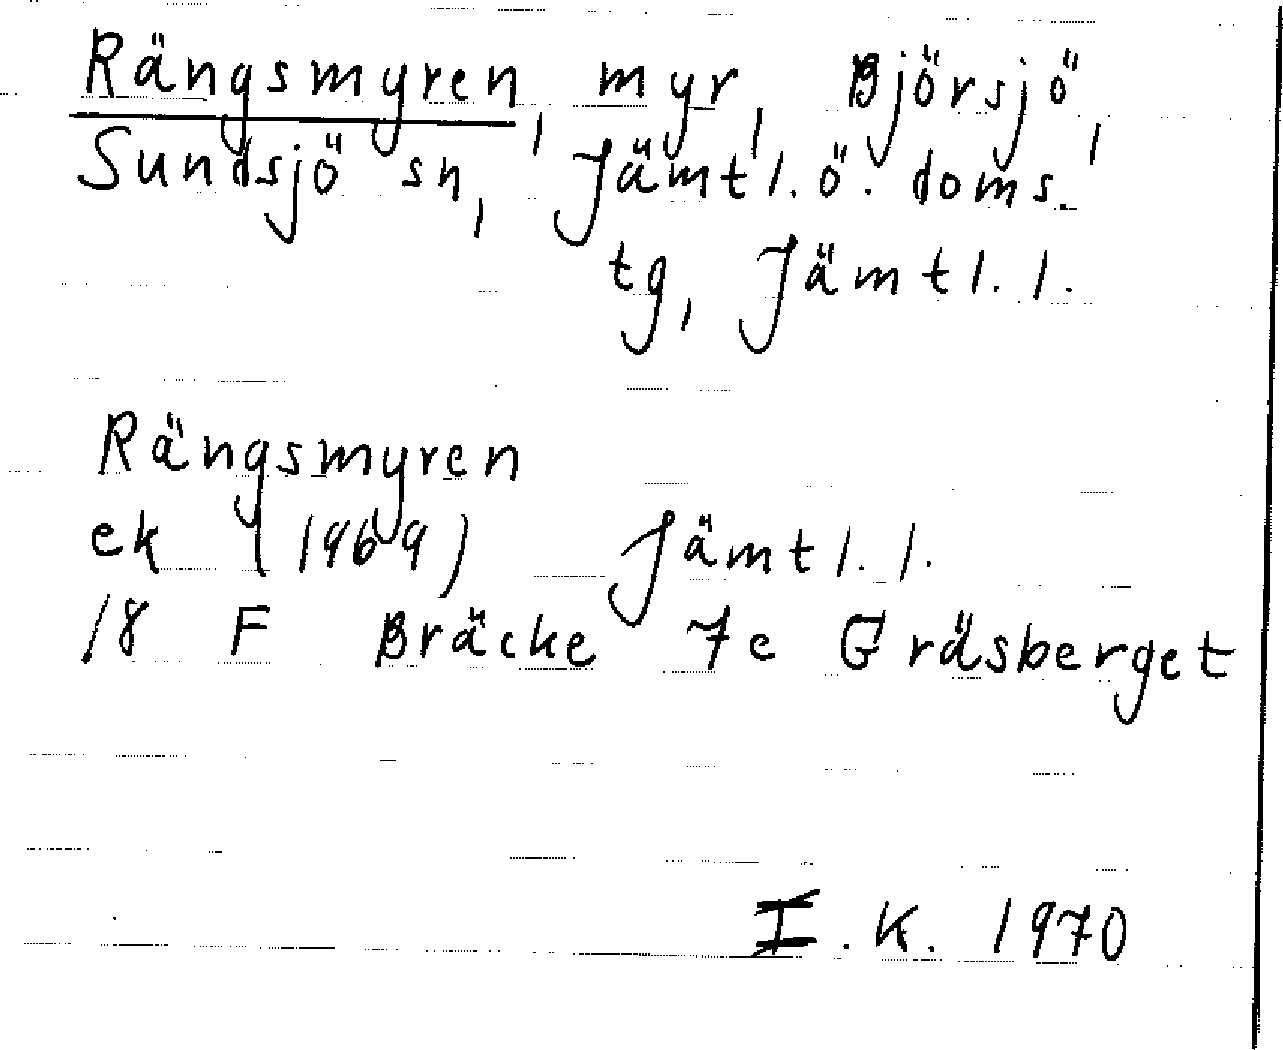 Rängsmyren, myr, Björsjö,
Sundsjö sn, Jämtl. ö. doms.
tg, Jämtl. l.
Rängsmyren
ek (1969) Jämtl. l.
18 F Bräcke 7e Gräsberget
I. K. 1970